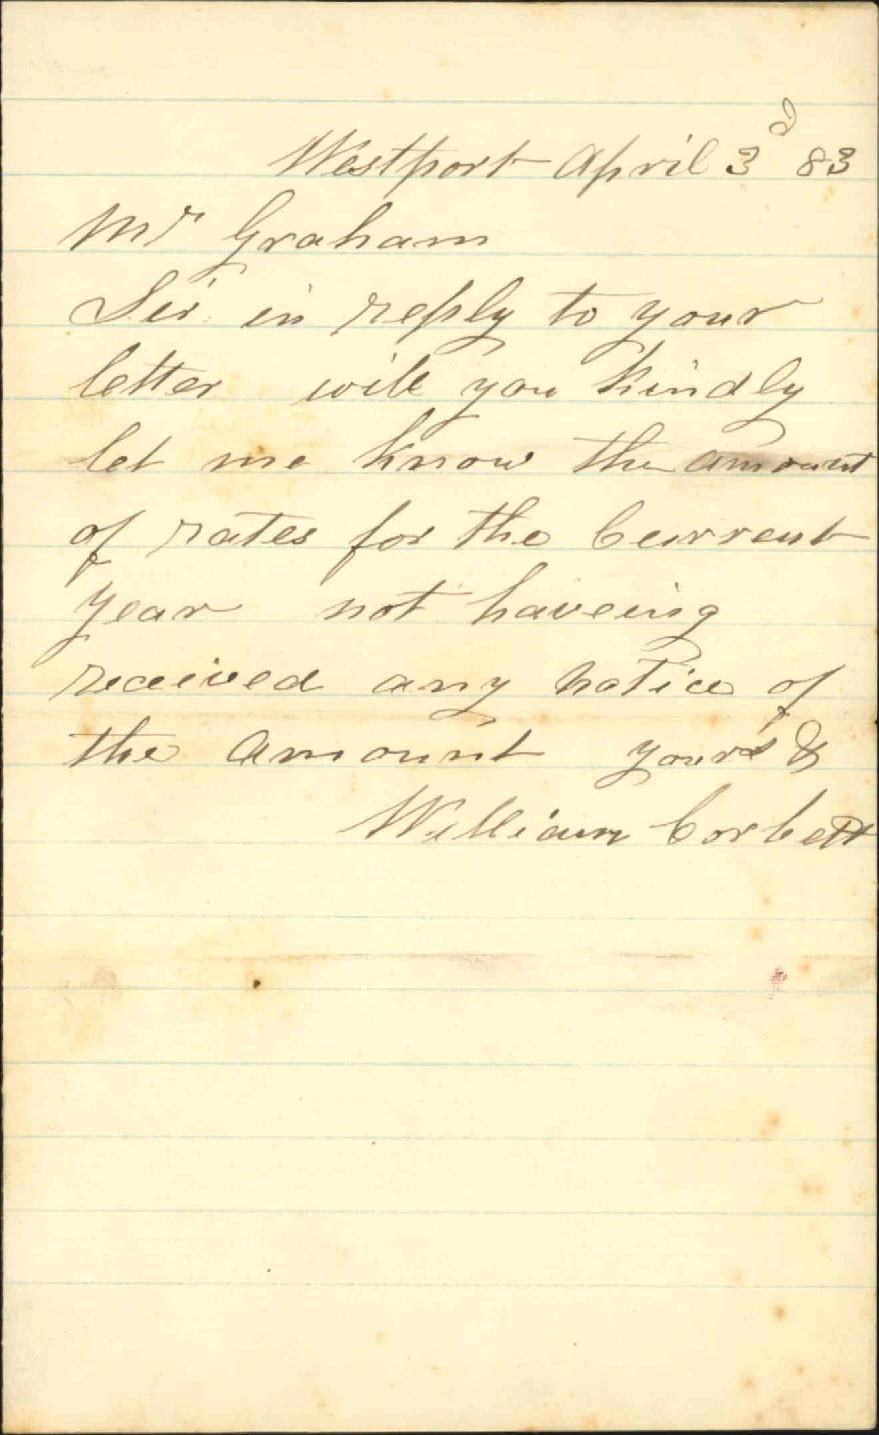 Westport April 3d 83
Mr Graham
Sir in reply to your
letter will you kindly
let me know the amount
of rates for the Current
year not haveing
received any notice of
the amount yours &
William Corbett